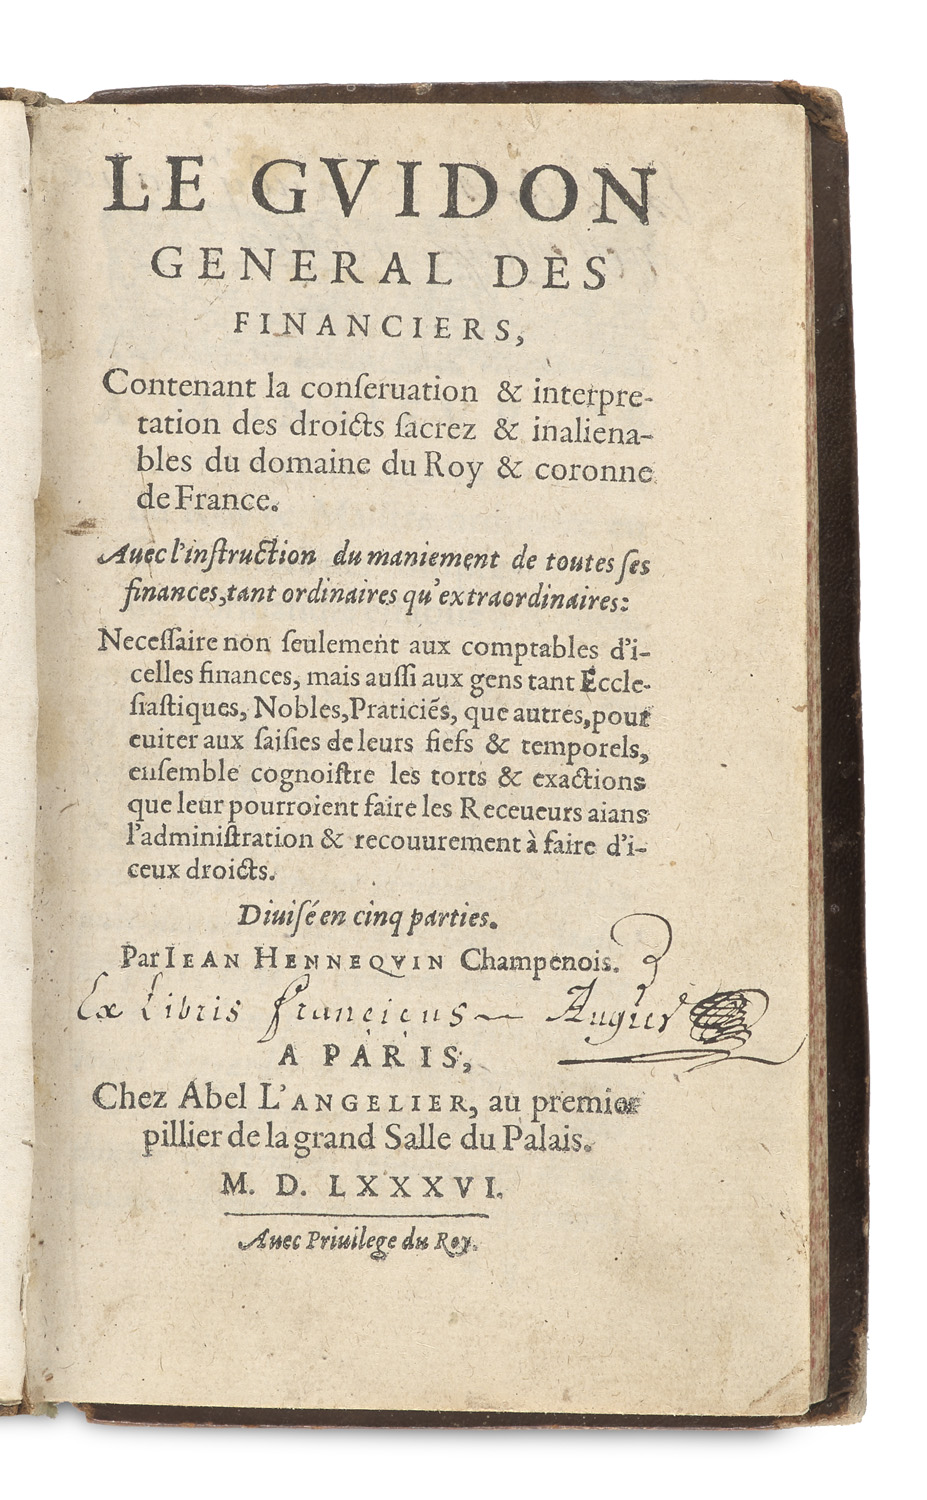 LE GVIDON
GENERAL DES
FINANCIERS,
Contenant la conſeruation & interpre-
tation des droicts ſacrez & inaliena-
bles du domaine du Roy & coronne
de France.
Auec l'inſtruction du maniement de toutes ſes
finances, tant ordinaires qu'extraordinaires:
Neceſſaire non ſeulement aux comptables d'i-
celles finances, mais auſſi aux gens tant Eccle-
ſiaſtiques, Nobles, Praticiẽs, que autres, pour
euiter aux ſaiſies de leurs fiefs & temporels,
enſemble cognoiſtre les torts & exactions
que leur pourroient faire les Receueurs aians
l'adminiſtration & recouurement à faire d'i-
ceux droicts.
Diuiſé en cinq parties.
Par IEAN HENNEQVIN Champenois.
Ex Libris franciscus Augier
A PARIS,
Chez Abel L'ANGELIER, au premier
pillier de la grand Salle du Palais.
M. D. LXXXVI.
Auec Priuilege du Roy.